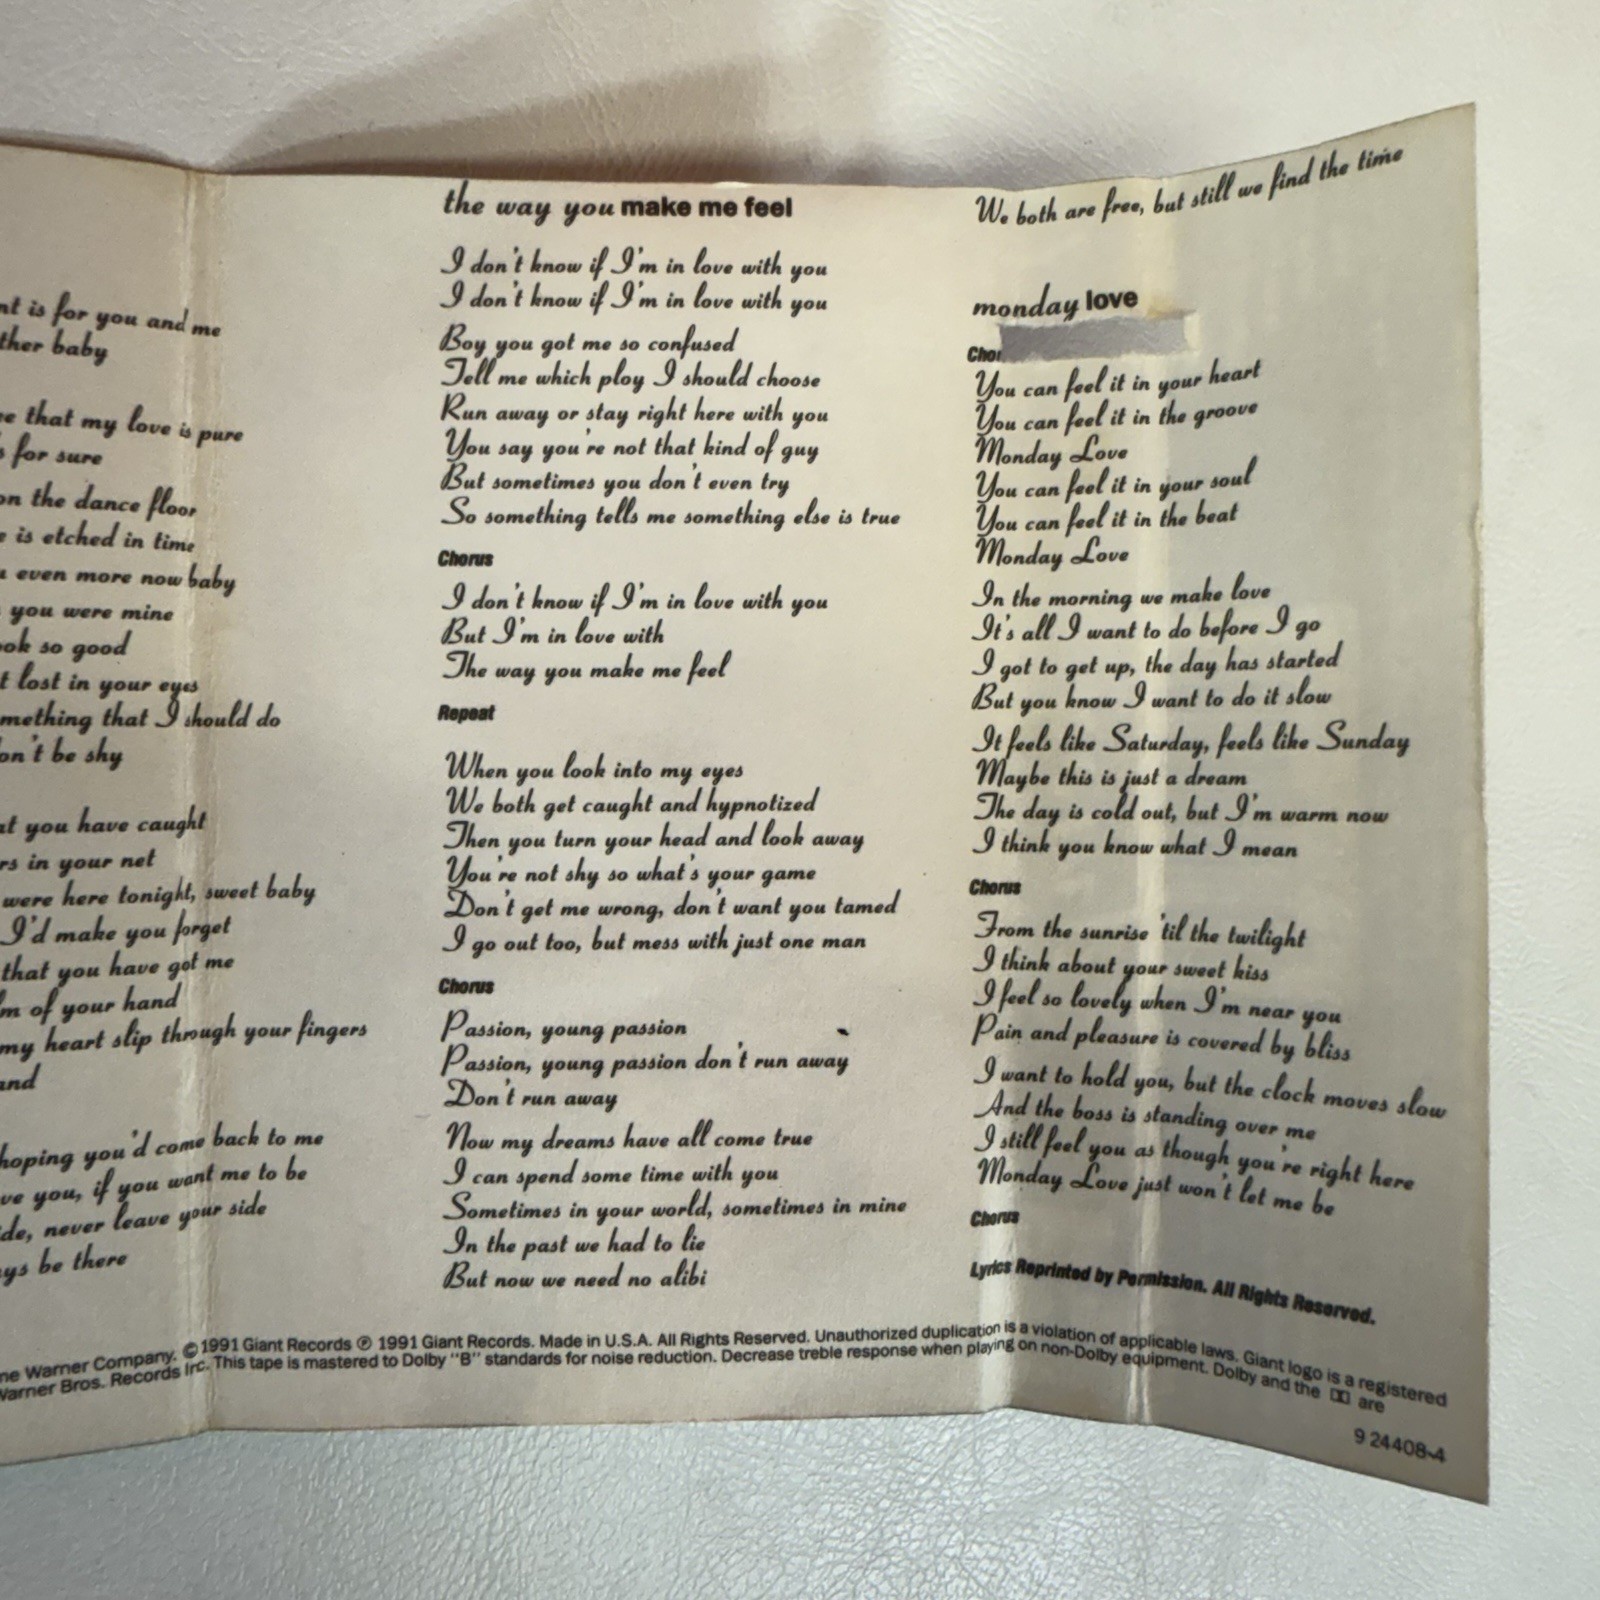 nt is for you and me
ther baby
e that my love is pure
s for sure
on the dance floor
e is etched in time
u even more now baby
you were mine
ook so good
t lost in your eyes
mething that I should do
on't be shy
at you have caught
rs in your net
were here tonight, sweet baby
I'd make you forget
that you have got me
lm of your hand
my heart slip through your fingers
and
hoping you'd come back to me
ve you, if you want me to be
ide, never leave your side
ays be there
the way you make me feel
I don't know if I'm in love with you
I don't know if I'm in love with you
Boy you got me so confused
Tell me which ploy I should choose
Run away or stay right here with you
You say you're not that kind of guy
But sometimes you don't even try
So something tells me something else is true
Chorus
I don't know if I'm in love with you
But I'm in love with
The way you make me feel
Repeat
When you look into my eyes
We both get caught and hypnotized
Then you turn your head and look away
You're not shy so what's your game
Don't get me wrong, don't want you tamed
I go out too, but mess with just one man
Chorus
Passion, young passion
Passion, young passion don't run away
Don't run away
Now my dreams have all come true
I can spend some time with you
Sometimes in your world, sometimes in mine
In the past we had to lie
But now we need no alibi
We both are free, but still we find the time
monday love
Chor
You can feel it in your heart
You can feel it in the groove
Monday Love
You can feel it in your soul
You can feel it in the beat
Monday Love
In the morning we make love
It's all I want to do before I go
I got to get up, the day has started
But you know I want to do it slow
It feels like Saturday, feels like Sunday
Maybe this is just a dream
The day is cold out, but I'm warm now
I think you know what I mean
Chorus
From the sunrise 'til the twilight
I think about your sweet kiss
I feel so lovely when I'm near you
Pain and pleasure is covered by bliss
I want to hold you, but the clock moves slow
And the boss is standing over me
I still feel you as though you're right here
Monday Love just won't let me be
Chorus
Lyrics Reprinted by Permission. All Rights Reserved.
ne Warner Company. © 1991 Giant Records ℗ 1991 Giant Records. Made in U.S.A. All Rights Reserved. Unauthorized duplication is a violation of applicable laws. Giant logo is a registered
Warner Bros. Records Inc. This tape is mastered to Dolby "B" standards for noise reduction. Decrease treble response when playing on non-Dolby equipment. Dolby and the are
9 24408-4